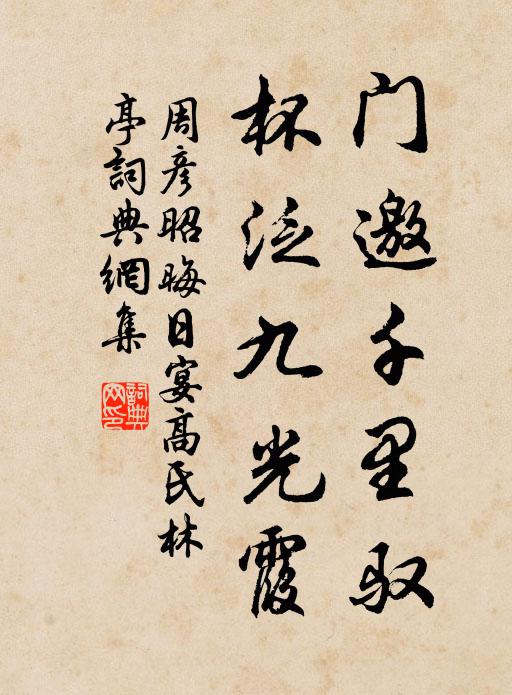 门邀千里驭
杯泛九光霞
周彦昭晦日宴高氏林
亭詞典網集
詞典网印